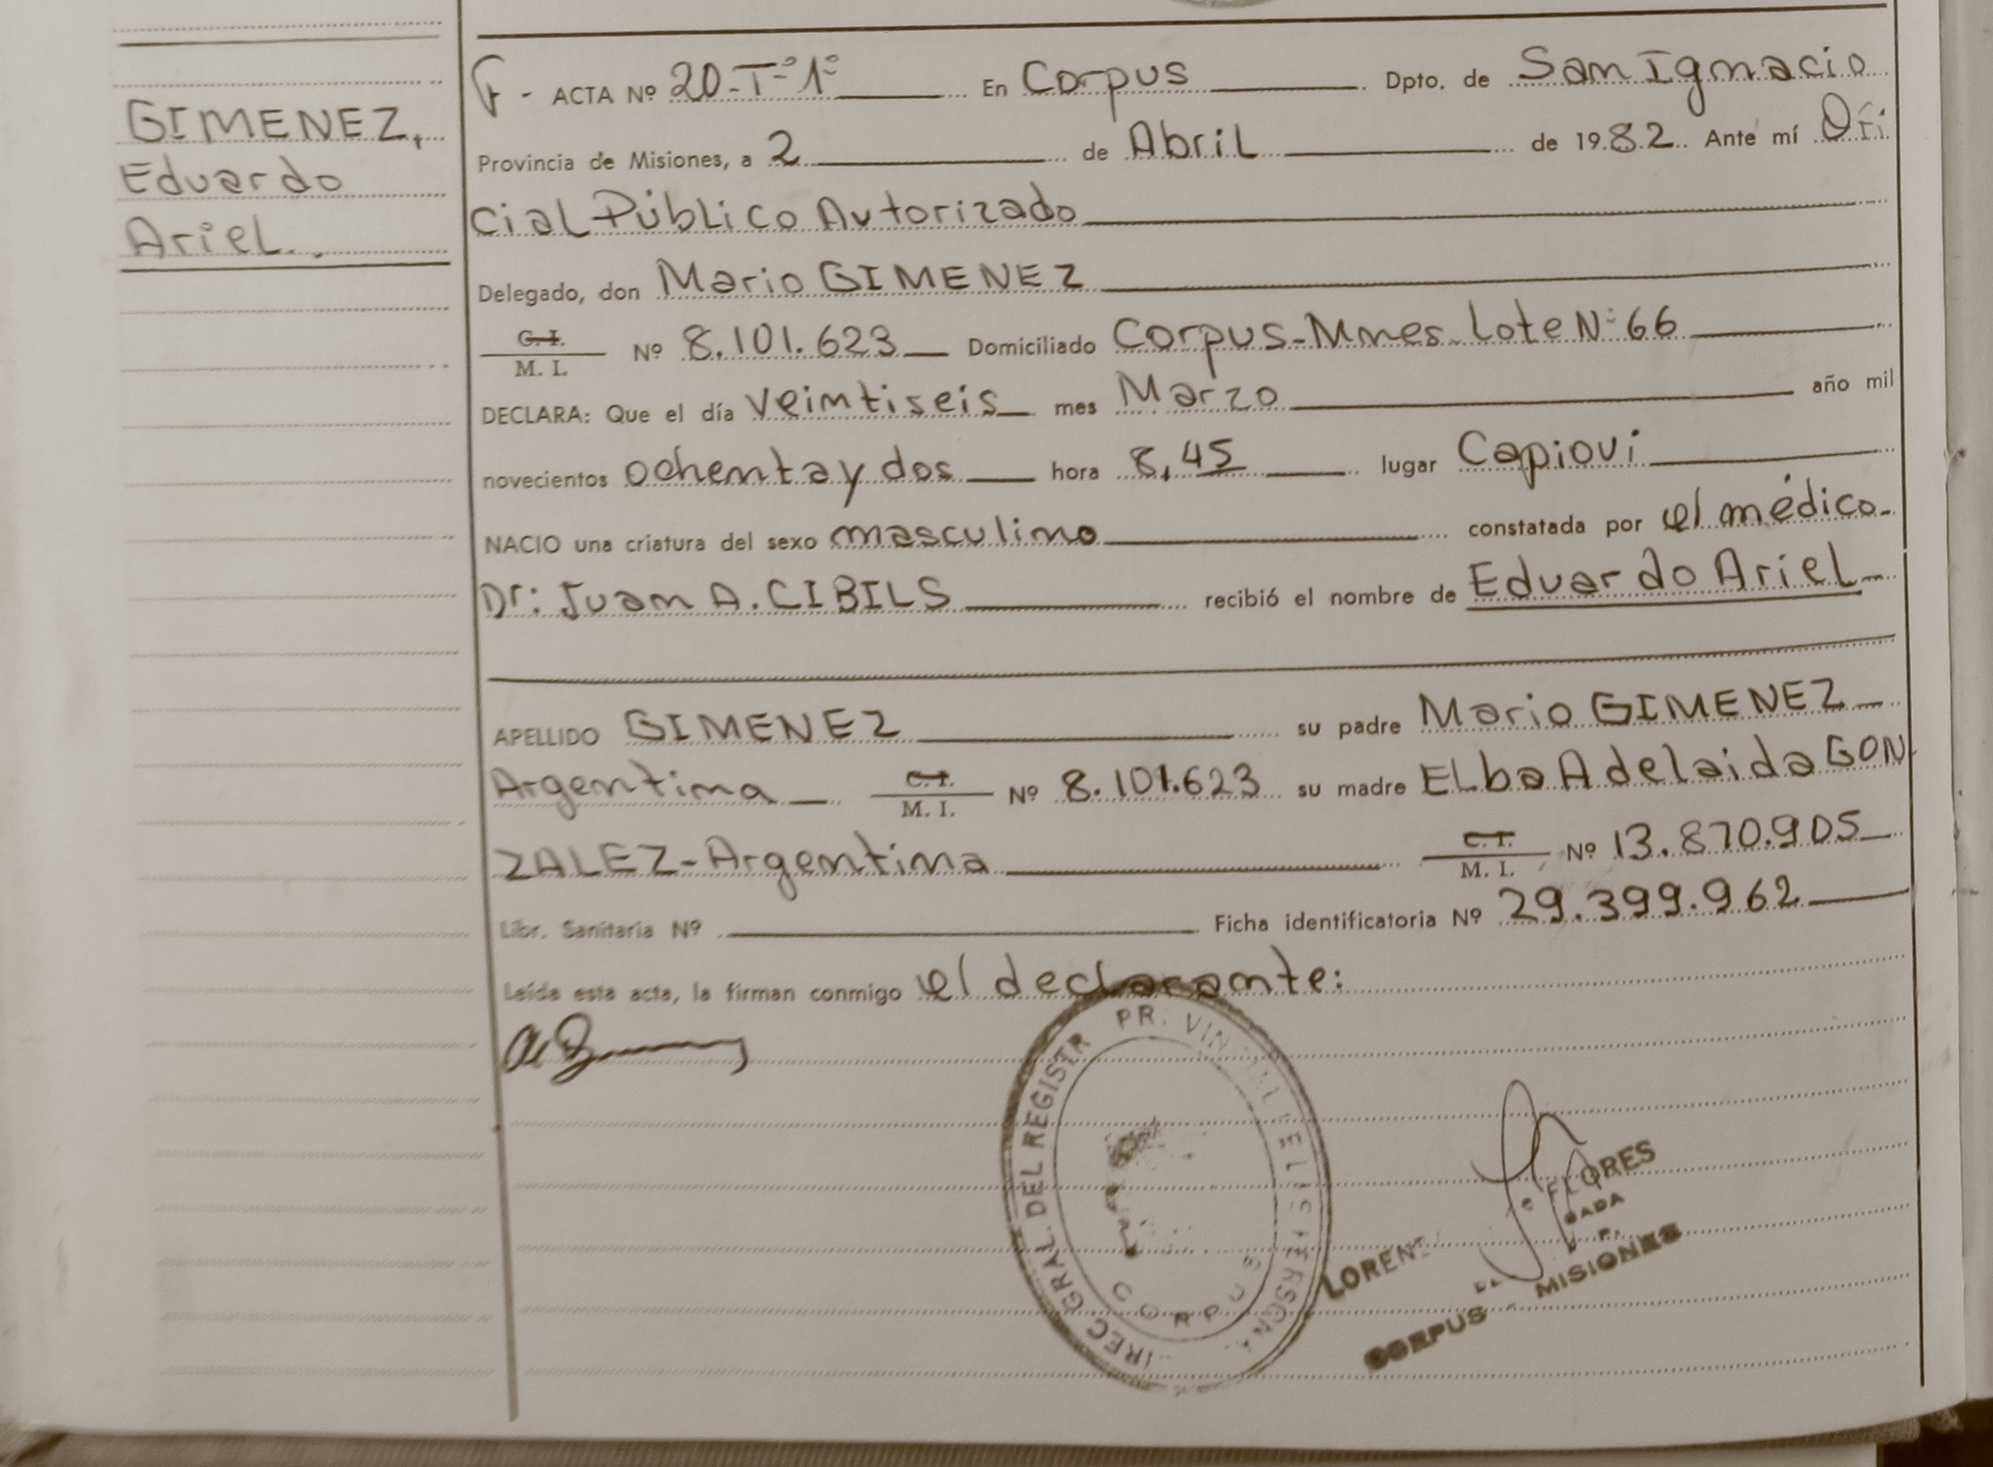 GIMENEZ,
Eduardo
Ariel.
F - ACTA Nº 20-Tº1º En Corpus Dpto. de San Ignacio
Provincia de Misiones, a 2 de Abril de 1982. Ante mí Ofi
cial Público Autorizado
Delegado, don Mario GIMENEZ
C.I.
M. I. Nº 8.101.623 Domiciliado Corpus-Mnes. Lote Nº 66
DECLARA: Que el día veintiseis mes Marzo año mil
novecientos ochenta y dos hora 8,45 lugar Capiovi
NACIO una criatura del sexo masculino constatada por el médico
Dr: Juan A. CIBILS recibió el nombre de Eduardo Ariel
APELLIDO GIMENEZ su padre Mario GIMENEZ
Argentina C.I. M. I. Nº 8.101.623 su madre Elba Adelaida GON
ZALEZ-Argentina C.I. M. I. Nº 13.870.905
Libr. Sanitaria Nº Ficha identificatoria Nº 29.399.962
Leída esta acta, la firman conmigo el declarante:
GRAL. DEL REGISTR
CORPUS
FLORES
CORPUS - MISIONES